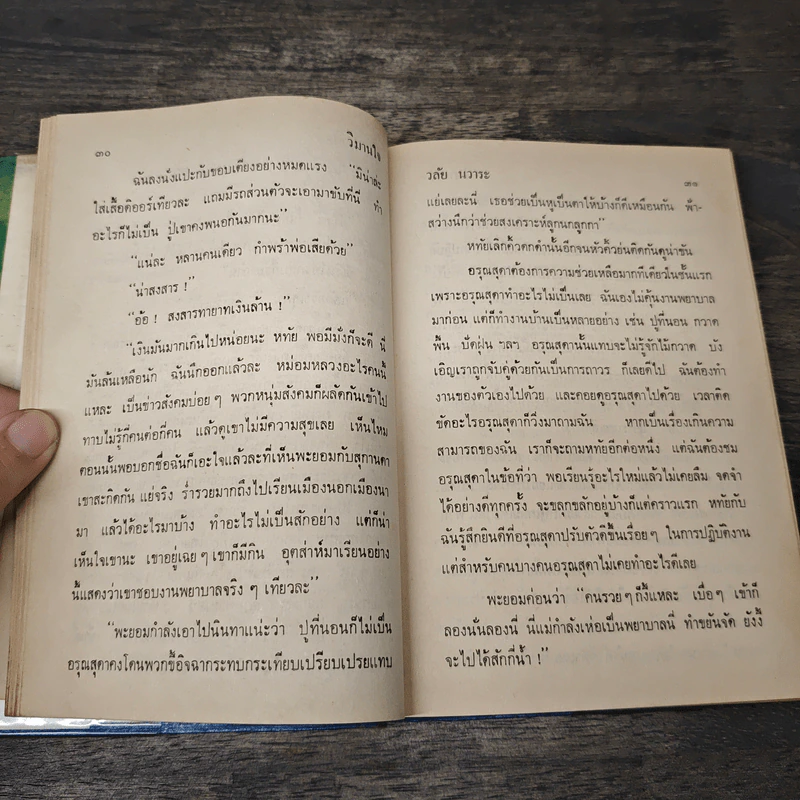 ๓๐
วิมานใจ
ฉันลงนั่งแปะกับขอบเตียงอย่างหมดแรง “มิน่าละ
ใส่เสื้อดิออร์เทียวละ แถมมีรถส่วนตัวจะเอามาขับที่นี่ ทำ
อะไรก็ไม่เป็น ปู่เขาคงพนอกันมากนะ”
“แน่ละ หลานคนเดียว กำพร้าพ่อเสียด้วย”
“น่าสงสาร !”
“อ้อ ! สงสารทายาทเงินล้าน !”
“เงินมันมากเกินไปหน่อยนะ หทัย พอมีมั่งก็จะดี นี่
มันล้นเหลือนัก ฉันนึกออกแล้วละ หม่อมหลวงอะไรคนนี้
แหละ เป็นข่าวสังคมบ่อยๆ พวกหนุ่มสังคมก็ผลัดกันเข้าไป
ทาบไม่รู้กี่คนต่อกี่คน แล้วดูเขาไม่มีความสุขเลย เห็นไหม
ตอนนั้นพบอกชื่อฉันก็เอะใจแล้วละที่เห็นพะยอมกับสุกานดา
เขาสะกิดกัน แย่จริง ร่ำรวยมากถึงไปเรียนเมืองนอกเมืองนา
มา แล้วได้อะไรมาบ้าง ทำอะไรไม่เป็นสักอย่าง แต่ก็น่า
เห็นใจเขานะ เขาอยู่เฉยๆ เขาก็มีกิน อุตส่าห์มาเรียนอย่าง
นี้แสดงว่าเขาชอบงานพยาบาลจริง ๆ เทียวละ”
“พะยอมกำลังเอาไปนินทาแน่ะว่า ปูที่นอนก็ไม่เป็น
อรุณสุดาคงโดนพวกขี้อิจฉากระทบกระเทียบเปรียบเปรยแทบ
วลัย นวาระ
๓๑
แย่เลยละนี่ เธอช่วยเป็นหูเป็นตาให้บ้างก็ดีเหมือนกัน ฟ้า-
สว่างนึกว่าช่วยสงเคราะห์ลูกนกลูกกา”
หทัยเลิกคิ้วดกดำนั้นอีกจนหัวคิ้วย่นติดกันดูน่าขัน
อรุณสุดาต้องการความช่วยเหลือมากทีเดียวในชั้นแรก
เพราะอรุณสุดาทำอะไรไม่เป็นเลย ฉันเองไม่คุ้นงานพยาบาล
มาก่อน แต่ก็ทำงานบ้านเป็นหลายอย่าง เช่น ปูที่นอน กวาด
พื้น ปัดฝุ่น ฯลฯ อรุณสุดานั้นแทบจะไม่รู้จักไม้กวาด บัง
เอิญเราถูกจับคู่ด้วยกันเป็นการถาวร ก็เลยดีไป ฉันต้องทำ
งานของตัวเองไปด้วย และคอยดูอรุณสุดาไปด้วย เวลาติด
ขัดอะไรอรุณสุดาก็วิ่งมาถามฉัน หากเป็นเรื่องเกินความ
สามารถของฉัน เราก็จะถามหทัยอีกต่อหนึ่ง แต่ฉันต้องชม
อรุณสุดาในข้อที่ว่า พอเรียนรู้อะไรใหม่แล้วไม่เคยลืม จดจำ
ได้อย่างดีทุกครั้ง จะขลุกขลักอยู่บ้างก็แต่คราวแรก หทัยกับ
ฉันรู้สึกยินดีที่อรุณสุดาปรับตัวดีขึ้นเรื่อยๆ ในการปฏิบัติงาน
แต่สำหรับคนบางคนอรุณสุดาไม่เคยทำอะไรดีเลย
พะยอมค่อนว่า “คนรวยๆ ก็งี้แหละ เบื่อๆ เข้าก็
ลองนั่นลองนี่ นี่แม่กำลังเห่อเป็นพยาบาลนี่ ทำขยันจัด ยังงี้
จะไปได้สักกี่น้ำ !”